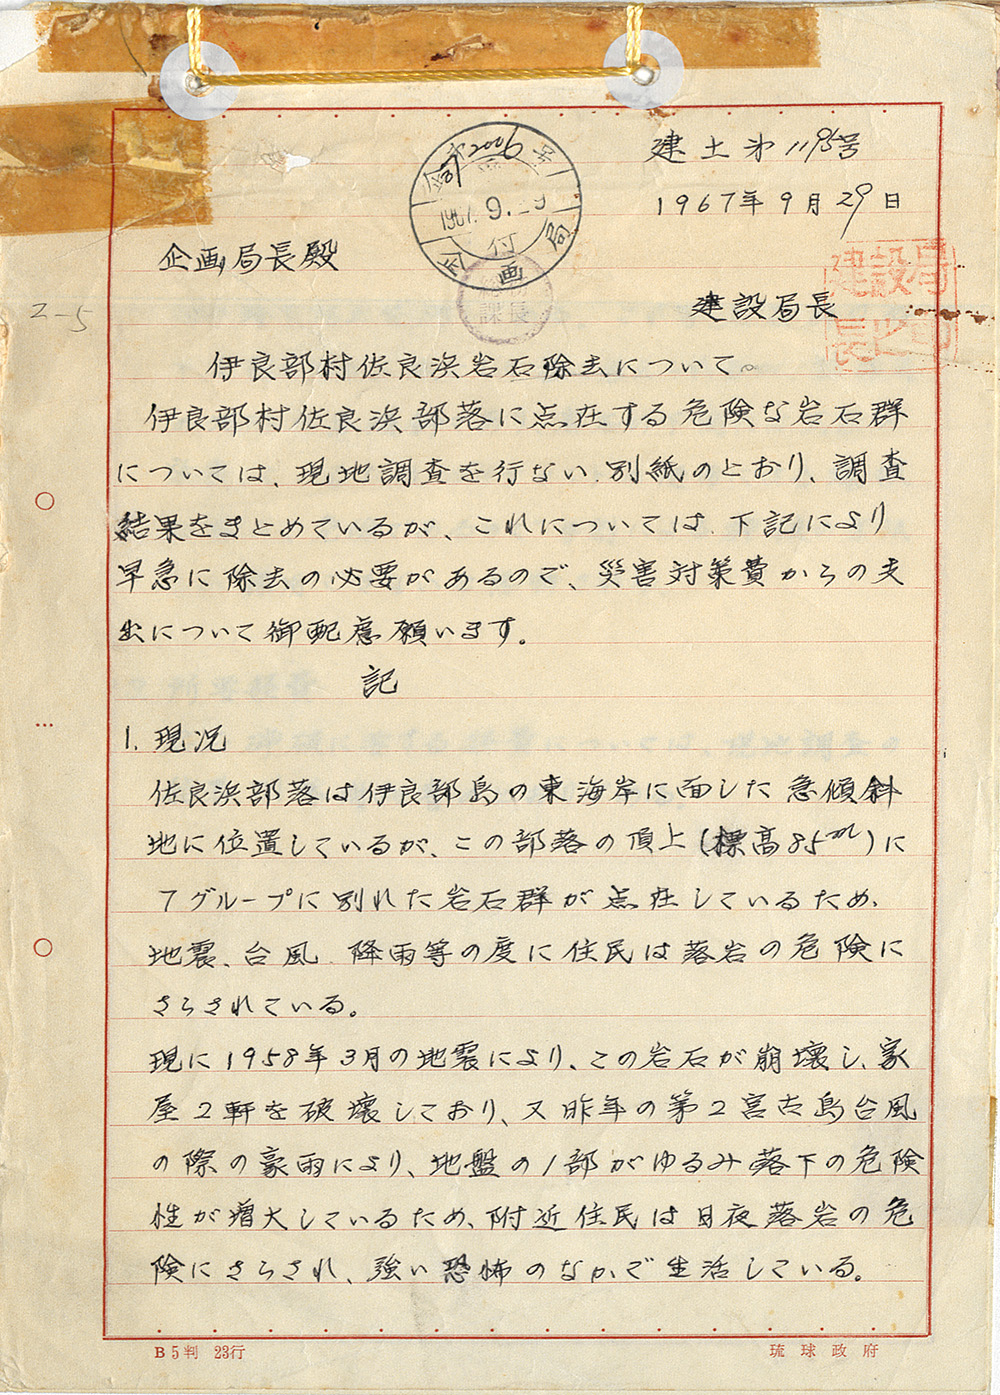 建土第1195号
1967年9月29日
企画局長殿
建設局長
建設局
長之印
企
第2006号
1967.9.29
付
企画局
課長
Z-5
伊良部村佐良浜岩石除去について。
伊良部村佐良浜部落に点在する危険な岩石群
については、現地調査を行ない別紙のとおり、調査
結果をまとめているが、これについては、下記により
早急に除去の必要があるので、災害対策費からの支
出について御配慮願います。
記
1. 現況
佐良浜部落は伊良部島の東海岸に面した急傾斜
地に位置しているが、この部落の頂上(標高85m)に
7グループに別れた岩石群が点在しているため、
地震、台風、降雨等の度に住民は落岩の危険に
さらされている。
現に1958年3月の地震により、この岩石が崩壊し、家
屋2軒を破壊しており、又昨年の第2宮古島台風
の際の豪雨により、地盤の1部がゆるみ落下の危険
性が増大しているため、附近住民は日夜落岩の危
険にさらされ、強い恐怖のなかで生活している。
B5判 23行
琉球政府